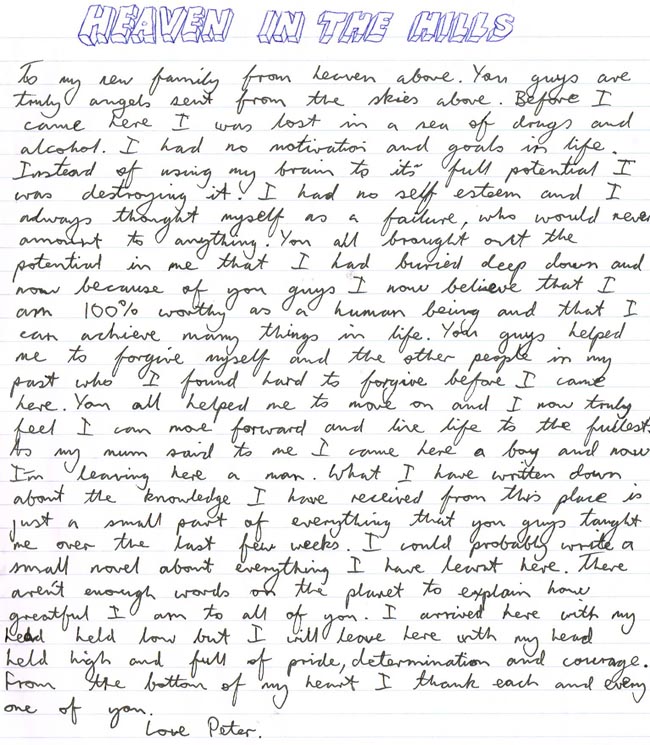 HEAVEN IN THE HILLS
To my new family from heaven above. You guys are
truly angels sent from the skies above. Before I
came here I was lost in a sea of drugs and
alcohol. I had no motivation and goals in life.
Instead of using my brain to its full potential I
was destroying it. I had no self esteem and I
always thought myself as a failure, who would never
amount to anything. You all brought out the
potential in me that I had buried deep down and
now because of you guys I now believe that I
am 100% worthy as a human being and that I
can achieve many things in life. You guys helped
me to forgive myself and the other people in my
past who I found hard to forgive before I came
here. You all helped me to move on and I now truly
feel I can move forward and live life to the fullest.
As my mum said to me I came here a boy and now
I'm leaving here a man. What I have written down
about the knowledge I have received from this place is
just a small part of everything that you guys taught
me over the last few weeks. I could probably write a
small novel about everything I have learnt here. There
aren't enough words on the planet to explain how
greatful I am to all of you. I arrived here with my
head held low but I will leave here with my head
held high and full of pride, determination and courage.
From the bottom of my heart I thank each and every
one of you.
Love Peter.